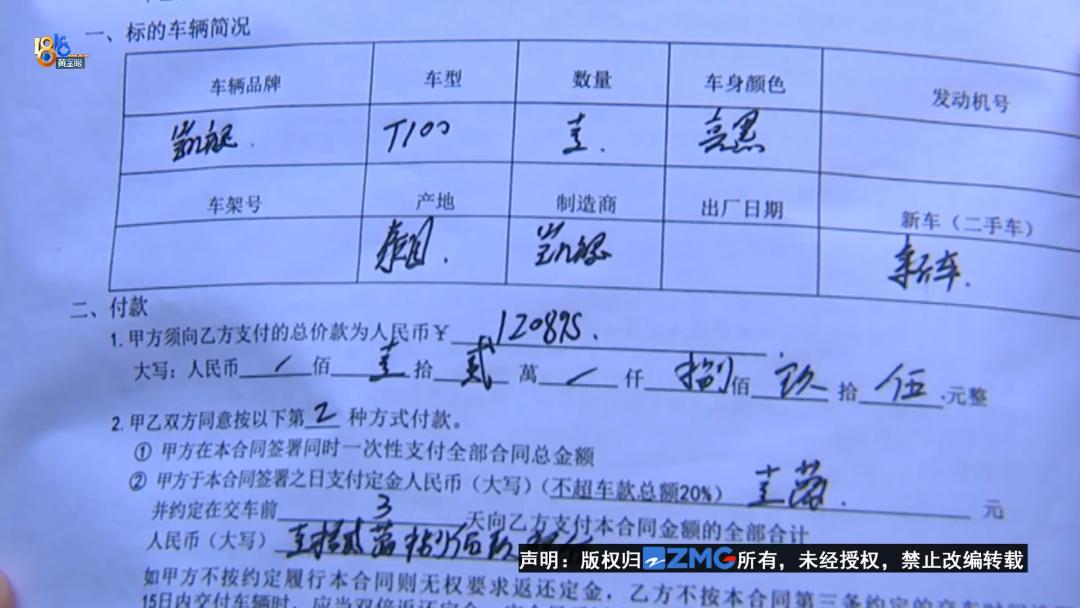 1818
黄金眼
一、标的车辆简况
车辆品牌 车型 数量 车身颜色 发动机号
凯馥 T100 壹. 亮黑
车架号 产地 制造商 出厂日期 新车（二手车）
泰国. 新车.
二、付款
1.甲方须向乙方支付的总价款为人民币￥ 120895.
大写：人民币 / 佰 壹 拾 贰 萬 / 仟 捌 佰 玖 拾 伍 .元整
2.甲乙双方同意按以下第 2 种方式付款。
① 甲方在本合同签署同时一次性支付全部合同总金额
② 甲方于本合同签署之日支付定金人民币（大写）（不超车款总额20%） 壹萬. 元
并约定在交车前 3 天向乙方支付本合同金额的全部合计
人民币（大写） 壹拾贰萬捌佰玖
声明：版权归ZMG所有，未经授权，禁止改编转载
如甲方不按约定履行本合同则无权要求返还定金，乙方不按本合同第三条约定的交车
15日内交付车辆时，应当双倍返还定金